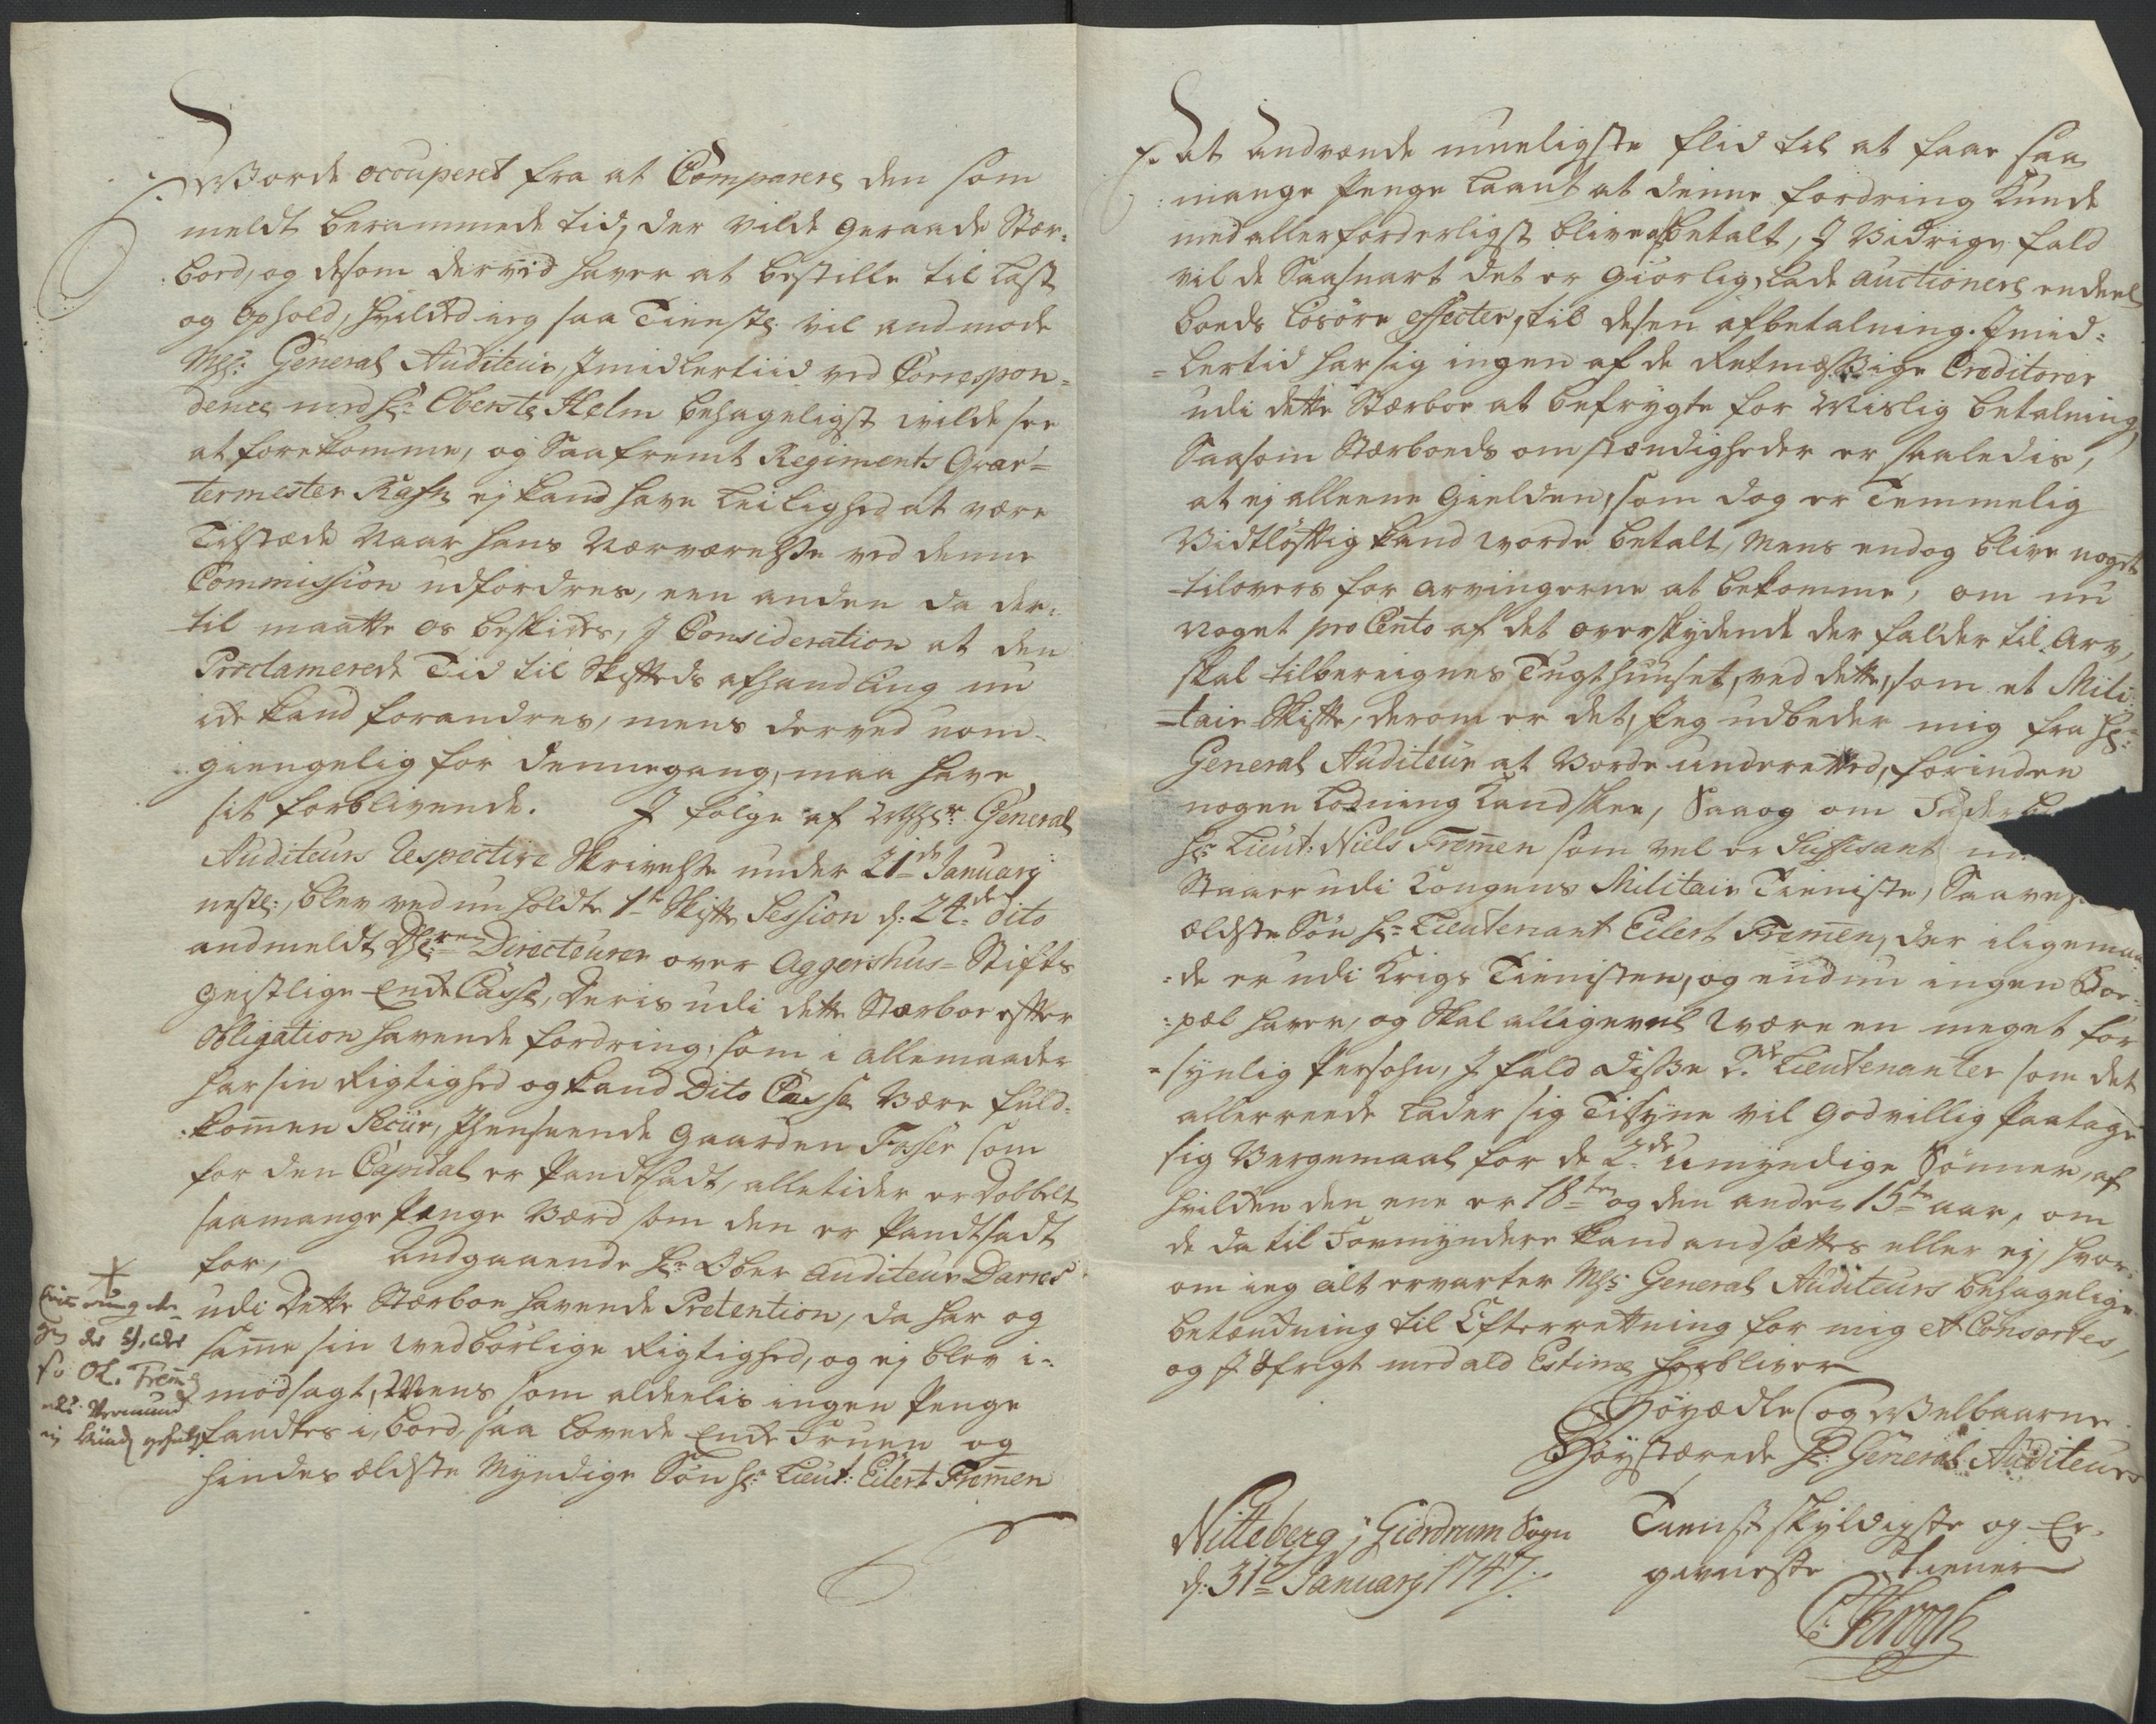 Worde occuperet fra at Comparere den som
meldt berammede tid, der vilde geraade Stær-
bord, og desom derved haver at bestille til Last
og Ophold, hvilked ieg saa Tienstl: vil andmode
Mhr: General Auditeur, Jmidlertiid ved Correspon-
dence med Hr: Oberste Helm behageligst vilde see
at forekomme, og Saafremt Regiments Qvar-
termester Rafn ej kand have Leilighed at være
Tilstæde Naar hans Nærværelse ved denne
Commission udfordres, een anden da der-
til maatte os beskikes, J Consideration at den
Proclamerede Tid til Skiftteds afhandling nu
icke kand forandres, mens derved uom-
giengelig for dennegang, maa have
sit forblivende. J følge af Mhr: General
Auditeurs Respective Skrivelse under 21de January
nestl:, blev ved nu holdte 1te Skiftte Session d: 24de dito
andmeldt Dhrr: Directeurer over Aggershus-Stifts
Geistlige Enke Casse, deris udi dette Stærboe efter
Obligation havende fordring, som i allemaader
har sin Rigtighed og kand Dito Casse Være fuld-
kommen Secür, Jhenseende Gaarden Fosser som
for den Capidal er Pandtsadt, alletider er Dobbelt
saamange Penge Værd som den er Pandtsadt
for, andgaaende Hr: Ober Auditeur Darres
udi Dette Stærboe havende Pretention, da har og
samme sin wedbørlige Rigtighed, og ej blev i-
modsagt, Mens som aldeelis ingen Penge
fandtes i, boed, saa lovede Enke Fruen og
hindes ældste Myndige Søn Hr: Lieut: Eilert Fremen
Ol. Frem
at andvende mueligste flid til at faae saa
mange Penge Laant at denne fordring kunde
med allerforderligst blive afbetalt, J Vidrige fald
vil de Saasnart det er giørlig, Lade auctionere endeel
boeds Løsøre effecter, til desen afbetalning. Jmid-
lertid har sig ingen af de Retmæssige Creditorer
udi dette Stærboe at befrygte for Mislig betalning,
Saasom Stærboeds omstændigheder er saaledis,
at ej alleene Gielden, som dog er Temmelig
Vidtløftig kand worde betalt, Mens endog blive noget
tilovers for arvingerne at bekomme, om nu
noget pro Cento af det overskydende der falder til Arv,
skal tilbereignes Tugthuuset, ved dette, som et Mili-
tair Skifte, derom er det, Jeg udbeder mig fra Hr:
General Auditeur at Vorde underetted, forinden
nogen Lodning kand skee, Saaog om
Hr: Lieut: Niels Fremen som vel er Suffisant
Staaer udi Kongens Militair Tieniste,
ældste Søn Hr: Lieutenant Eilert Fremen, der iligemaa-
de er udi Krigs Tienisten, og endnu ingen Boe-
pæl haver, og Skal alligevel være en meget for-
synlig Persohn, J fald disse 2de Lieutenanter som det
allerreede Lader sig Tilsyne vil Godvillig Paatage
sig Vergemaal for de 2de umyndige Sønner, af
hvilken den ene er 18ten og den anden 15ten aar, om
de da til Formyndere kand andsættes eller ej, hvor-
om ieg alt ervarter Mhr: General Auditeurs behagelige
betænkning til Efterrettning for mig et Consortes,
og J øfrigt med ald Estime forbliver
Høyædle og Welbaarne
Høystærede Hr: General Auditeurs
Nitteberg i Gierdrum Sogn
d: 31te January 1747.
Tienstskyldigste og Er-
givneste Tiener
C: Krogh